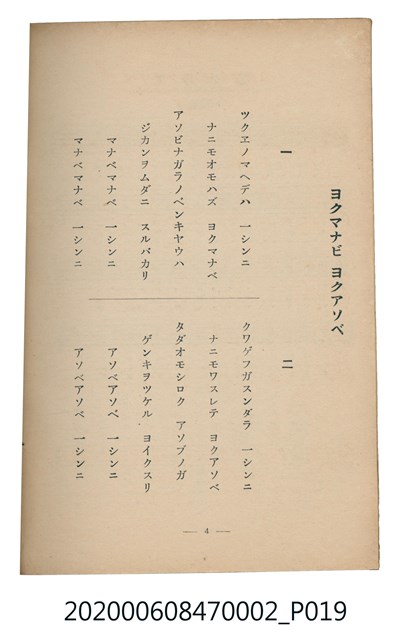 ヨクマナビ ヨクアソベ
一
ツクエノマヘデハ 一シンニ
ナニモオモハズ ヨクマナベ
アソビナガラノベンキヤウハ
ジカンヲムダニ スルバカリ
マナベマナベ 一シンニ
マナベマナベ 一シンニ
二
クワゲフガスンダラ 一シンニ
ナニモワスレテ ヨクアソベ
タダオモシロク アソブノガ
ゲンキヲツケル ヨイクスリ
アソベアソベ 一シンニ
アソベアソベ 一シンニ
— 4 —
202000608470002_P019